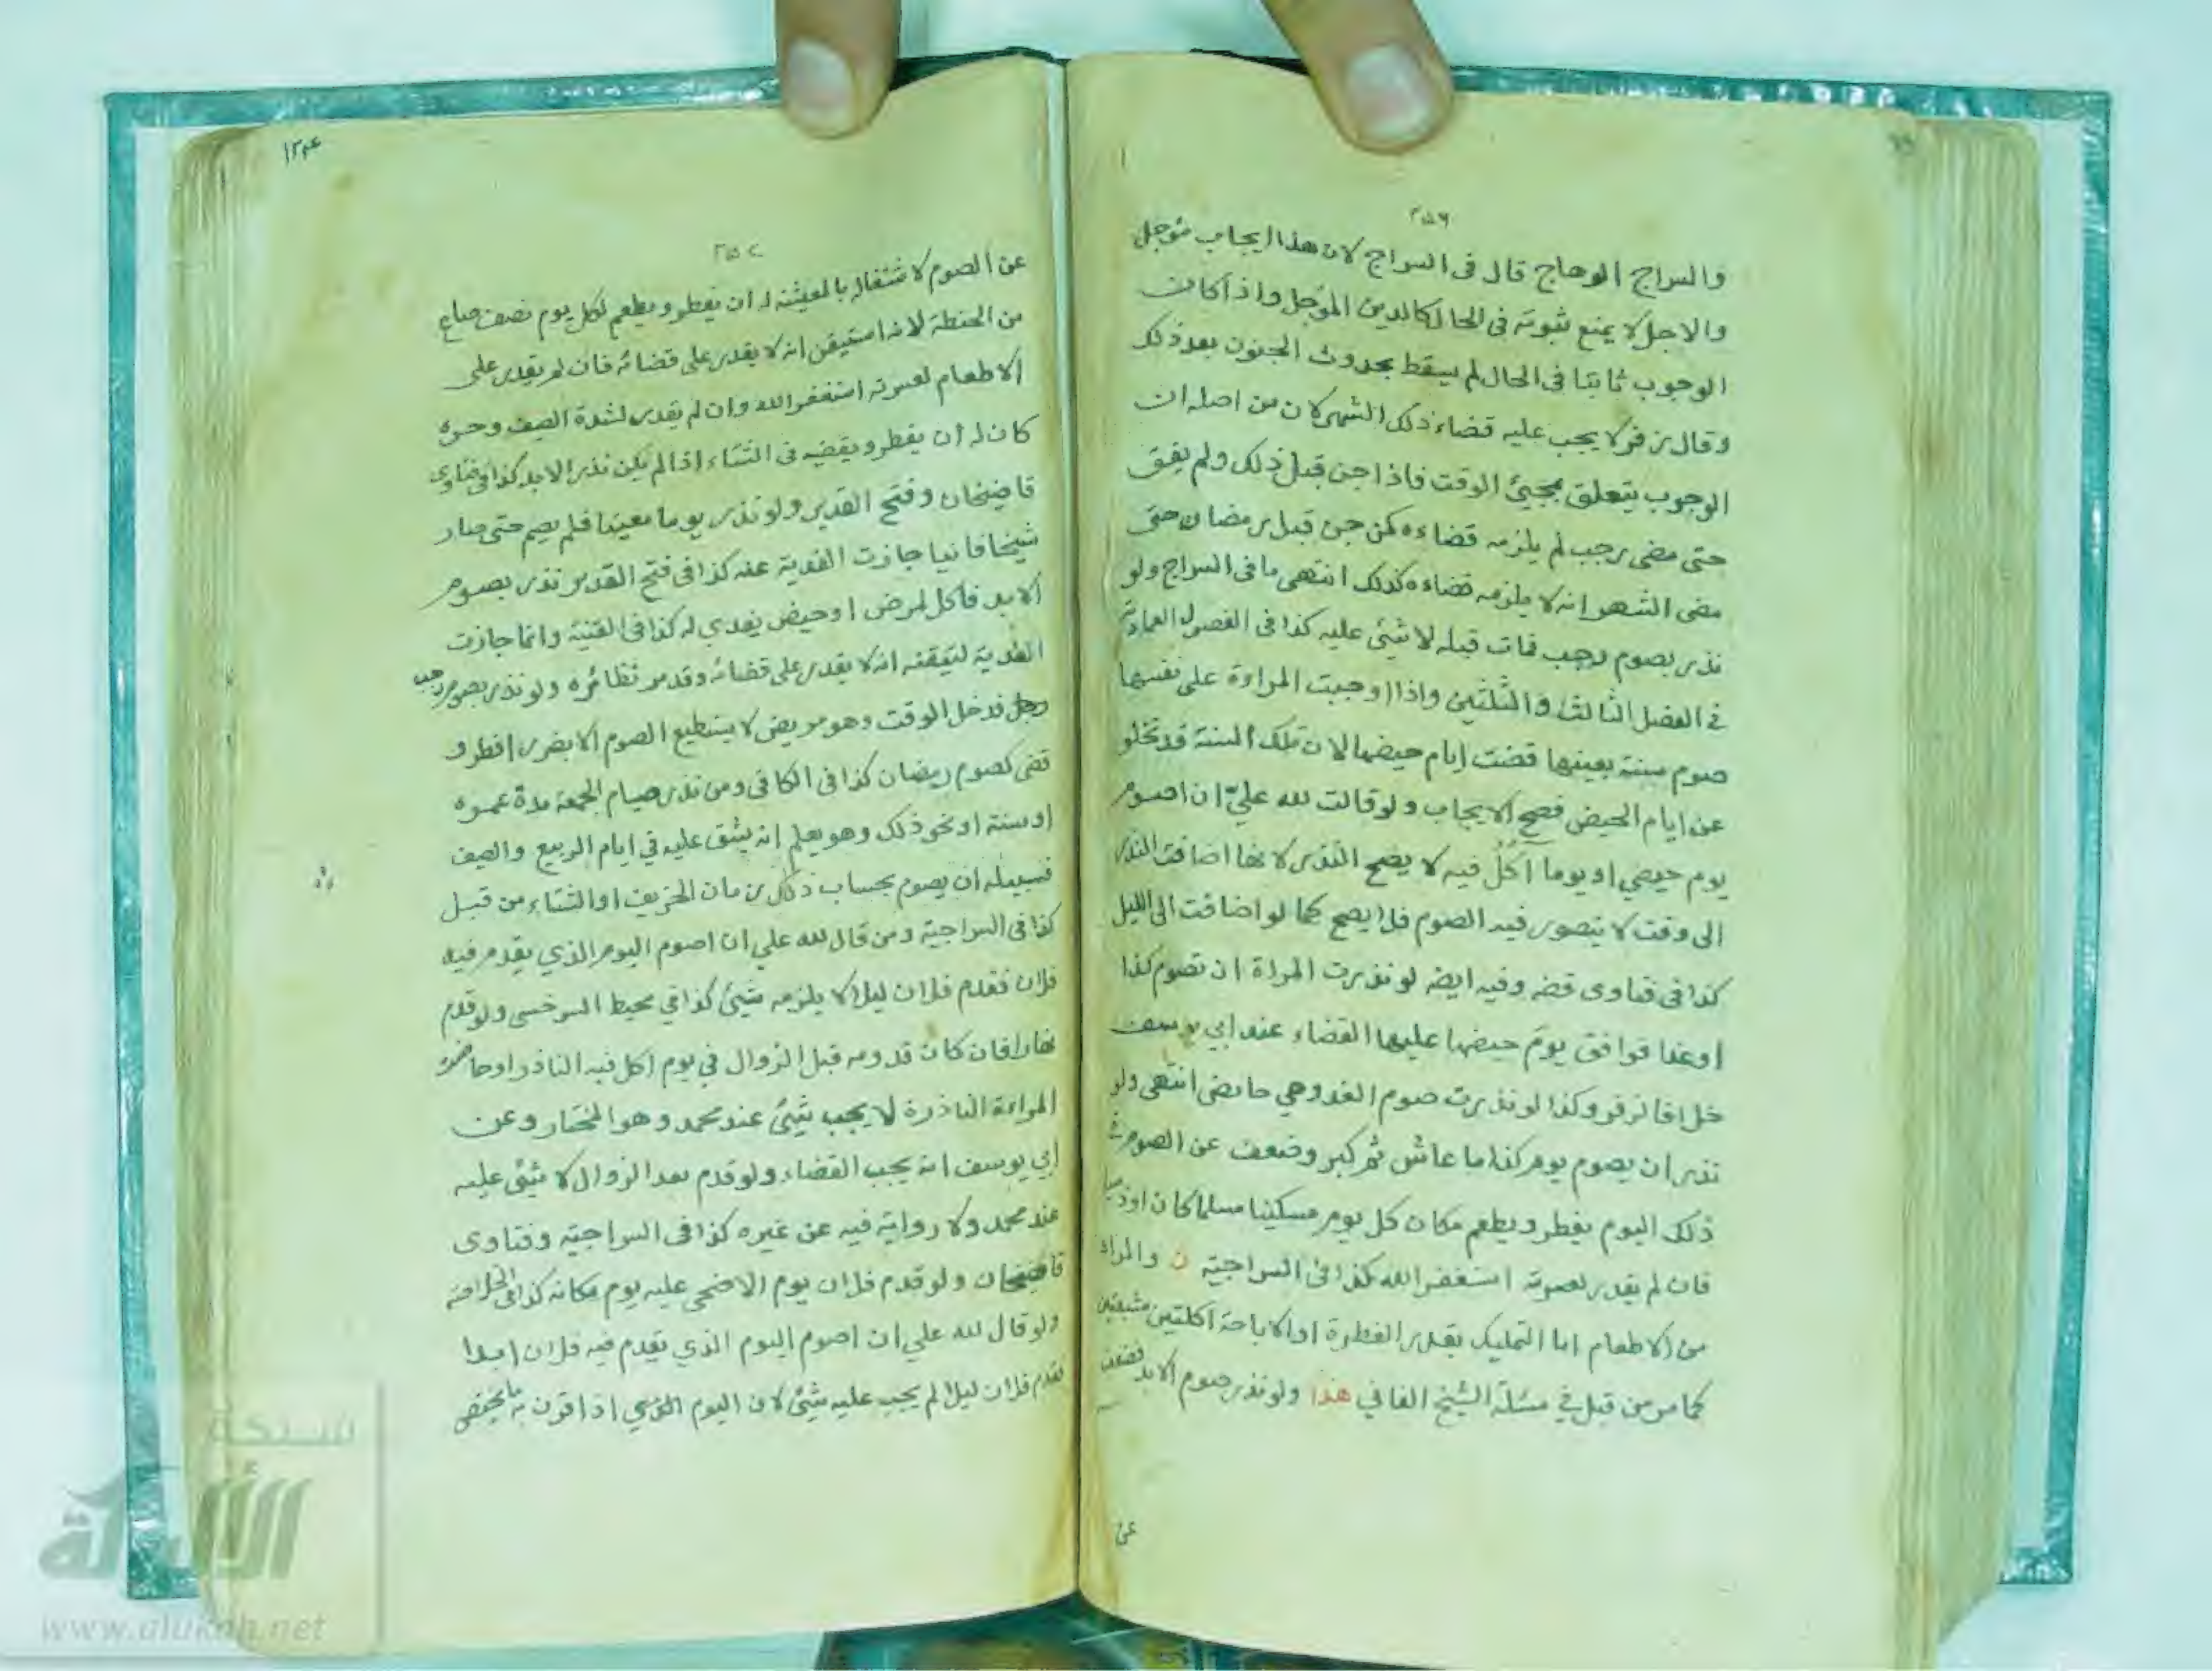 ٢٥٦
والسراج الوهاج قال فى السراج لان هذا ايجاب مؤجل
والاجل لا يمنع ثبوته فى الحال كالدين المؤجل واذا كان
الوجوب ثابتا فى الحال لم يسقط بحدوث الجنون بعد ذلك
وقال زفر لا يجب عليه قضاء ذلك الشهر لان من اصله ان
الوجوب يتعلق بمجيئ الوقت فاذا جن قبل ذلك ولم يفق
حتى مضى رجب لم يلزمه قضاءه كمن جن قبل رمضان حتى
مضى الشهر انه لا يلزمه قضاءه كذلك انتهى ما فى السراج ولو
نذر بصوم رجب فمات قبله لا شيئ عليه كذا فى الفصول العمادية
فى الفصل الثالث والثلثين واذا اوجبت المراءة على نفسها
صوم سنة بعينها قضت ايام حيضها لان تلك السنة قد تخلو
عن ايام الحيض فصح الايجاب ولو قالت لله عليّ ان اصوم
يوم حيضي او يوما آكُلُ فيه لا يصح النذر لانها اضافت النذر
الى وقت لا يتصور فيه الصوم فلا يصح كما لو اضافت الى الليل
كذا فى فتاوى قضه وفيه ايضه لو نذرت المراة ان تصوم كذا
او غدا فوافق يوم حيضها عليها القضاء عند ابي يوسف
خلافا لزفر وكذا لو نذرت صوم الغد وهي حائض انتهى ولو
نذر ان يصوم يوم كذا ما عاش ثم كبر وضعف عن الصوم فى
ذلك اليوم يفطر ويطعم مكان كل يوم مسكينا مسلما كان او ذميا
فان لم يقدر لعسرته استغفر الله كذا فى السراجية ن والمراد
من الاطعام اما التمليك بقدر الفطرة او الاباحة اكلتين مشبعتين
كما مر من قبل في مسئلة الشيخ الفاني هذا ولو نذر صوم الابد فضعف
عن
٢٥٧
عن الصوم لاشتغاله بالمعيشة له ان يفطر ويطعم لكل يوم نصف صاع
من الحنطة لانه استيقن انه لا يقدر على قضائه فان لم يقدر على
الاطعام لعسرته استغفر الله وان لم يقدر لشدة الصيف وحره
كان له ان يفطر ويقضيه فى الشتاء اذا لم يكن نذر الابد كذا فى فتاوى
قاضيخان وفتح القدير ولو نذر يوما معينا فلم يصم حتى صار
شيخا فانيا جازت الفدية عنه كذا فى فتح القدير نذر بصوم
الابد فاكل لمرض او حيض يفدي له كذا فى القنية وانما جازت
الفدية لتيقنه انه لا يقدر على قضائه وقد مر نظائره ولو نذر بصوم رجب
رجل فدخل الوقت وهو مريض لا يستطيع الصوم الا بضرر افطر و
قضى كصوم رمضان كذا فى الكافى ومن نذر صيام الجمعة مدة عمره
او سنة او نحو ذلك وهو يعلم انه يشق عليه في ايام الربيع والصيف
فسبيله ان يصوم بحساب ذلك زمان الخريف او الشتاء من قبل
كذا فى السراجية ومن قال لله علي ان اصوم اليوم الذي يقدم فيه
فلان فقدم فلان ليلا لا يلزمه شيئ كذا في محيط السرخسى ولو قدم
نهارا فان كان قدومه قبل الزوال في يوم اكل فيه الناذر او حاضت
المراءة الناذرة لا يجب شيئ عند محمد وهو المختار وعن
ابي يوسف انه يجب القضاء ولو قدم بعد الزوال لا شيئ عليه
عند محمد ولا رواية فيه عن غيره كذا فى السراجية وفتاوى
قاضيخان ولو قدم فلان يوم الاضحى عليه يوم مكانه كذا فى الخلاصة
ولو قال لله علي ان اصوم اليوم الذي يقدم فيه فلان ابدا
فقدم فلان ليلا لم يجب عليه شيئ لان اليوم الذي اذا قرن به ما يختص
شبكة
الألوكة
www.alukah.net